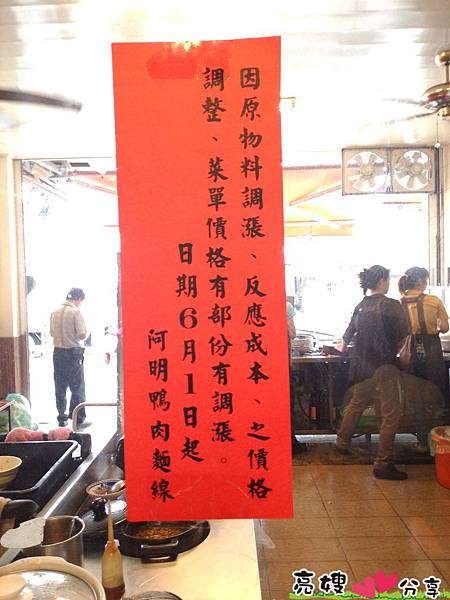 因原物料調漲、反應成本、之價格
調整、菜單價格有部份有調漲。
日期6月1日起
阿明鴨肉麵線
亮嫂 分享